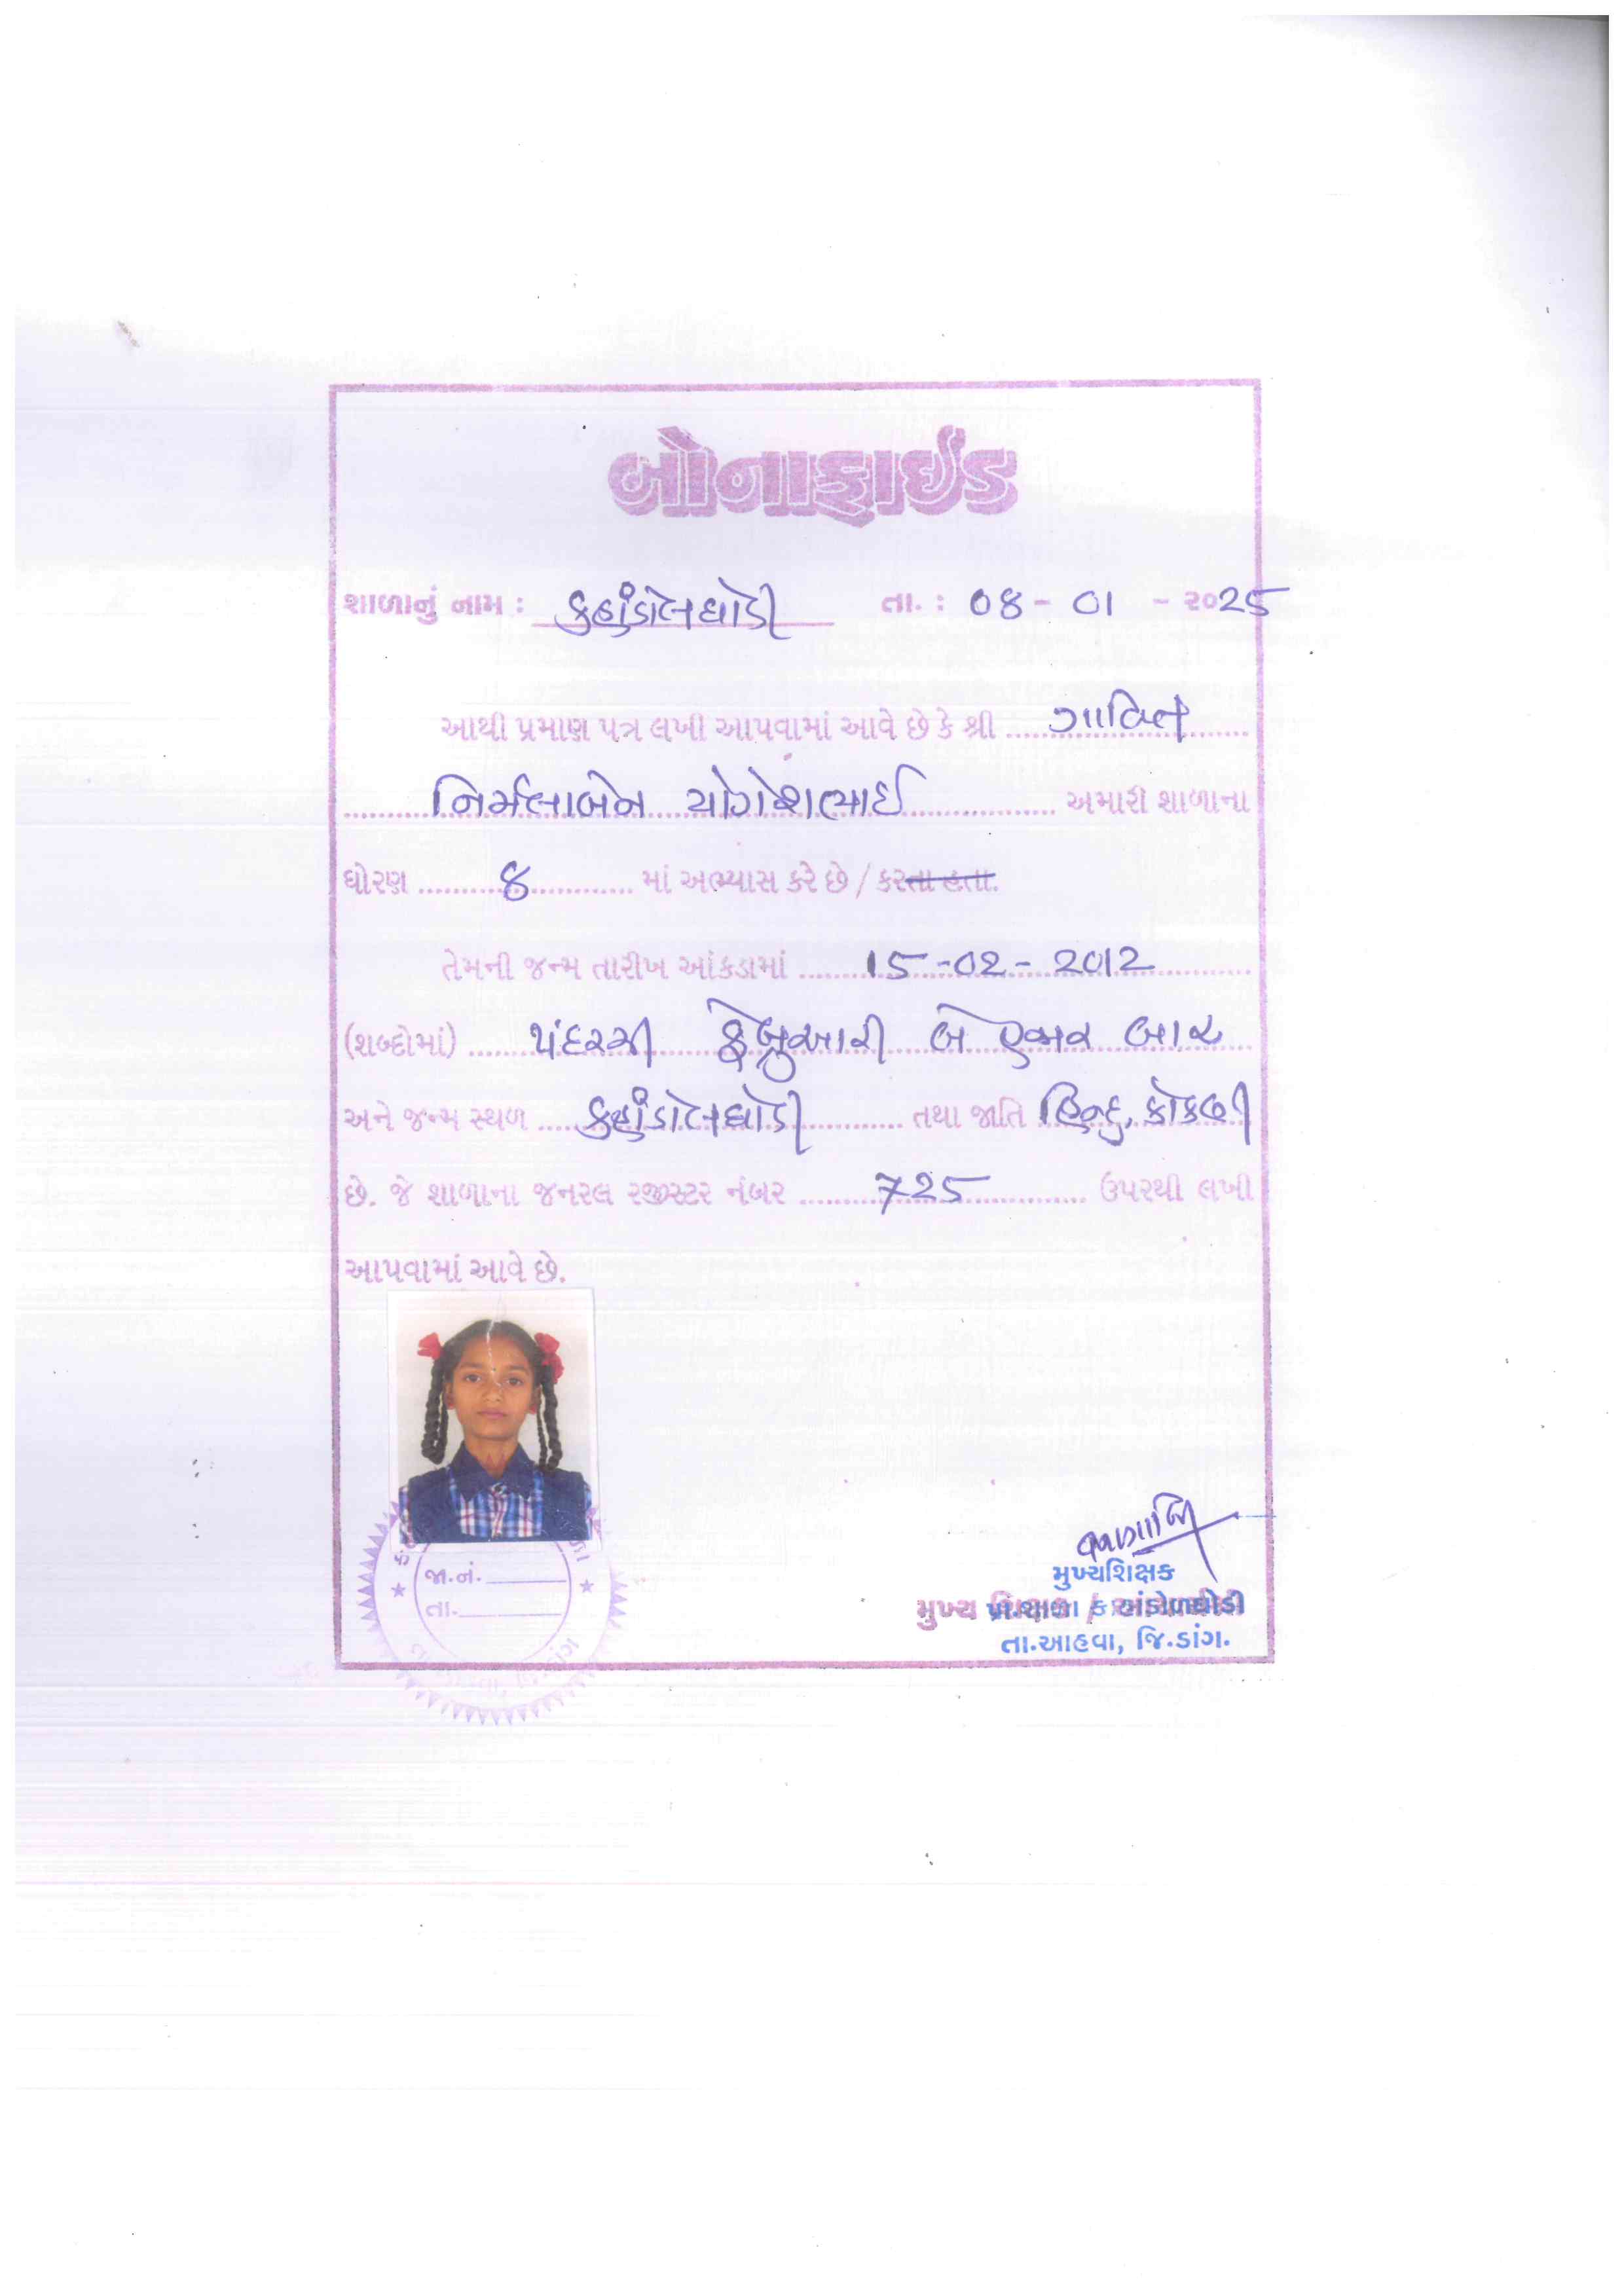 બોનાફાઈડ
શાળાનું નામ : કુહાંડોલઘોડી તા. : 08 - 01 - ૨૦25
આથી પ્રમાણ પત્ર લખી આપવામાં આવે છે કે શ્રી ગાવિત
નિર્મલાબેન યોગેશભાઈ અમારી શાળાના
ધોરણ ૪ માં અભ્યાસ કરે છે / કરતા હતા.
તેમની જન્મ તારીખ આંકડામાં 15-02-2012
(શબ્દોમાં) પંદરમી ફેબ્રુઆરી બે હજાર બાર
અને જન્મ સ્થળ કુહાંડોલઘોડી તથા જાતિ હિન્દુ, કોકણી
છે. જે શાળાના જનરલ રજીસ્ટર નંબર 725 ઉપરથી લખી
આપવામાં આવે છે.
જા.નં.
તા.
મુખ્યશિક્ષક
મુખ્ય
તા.આહવા, જિ.ડાંગ.